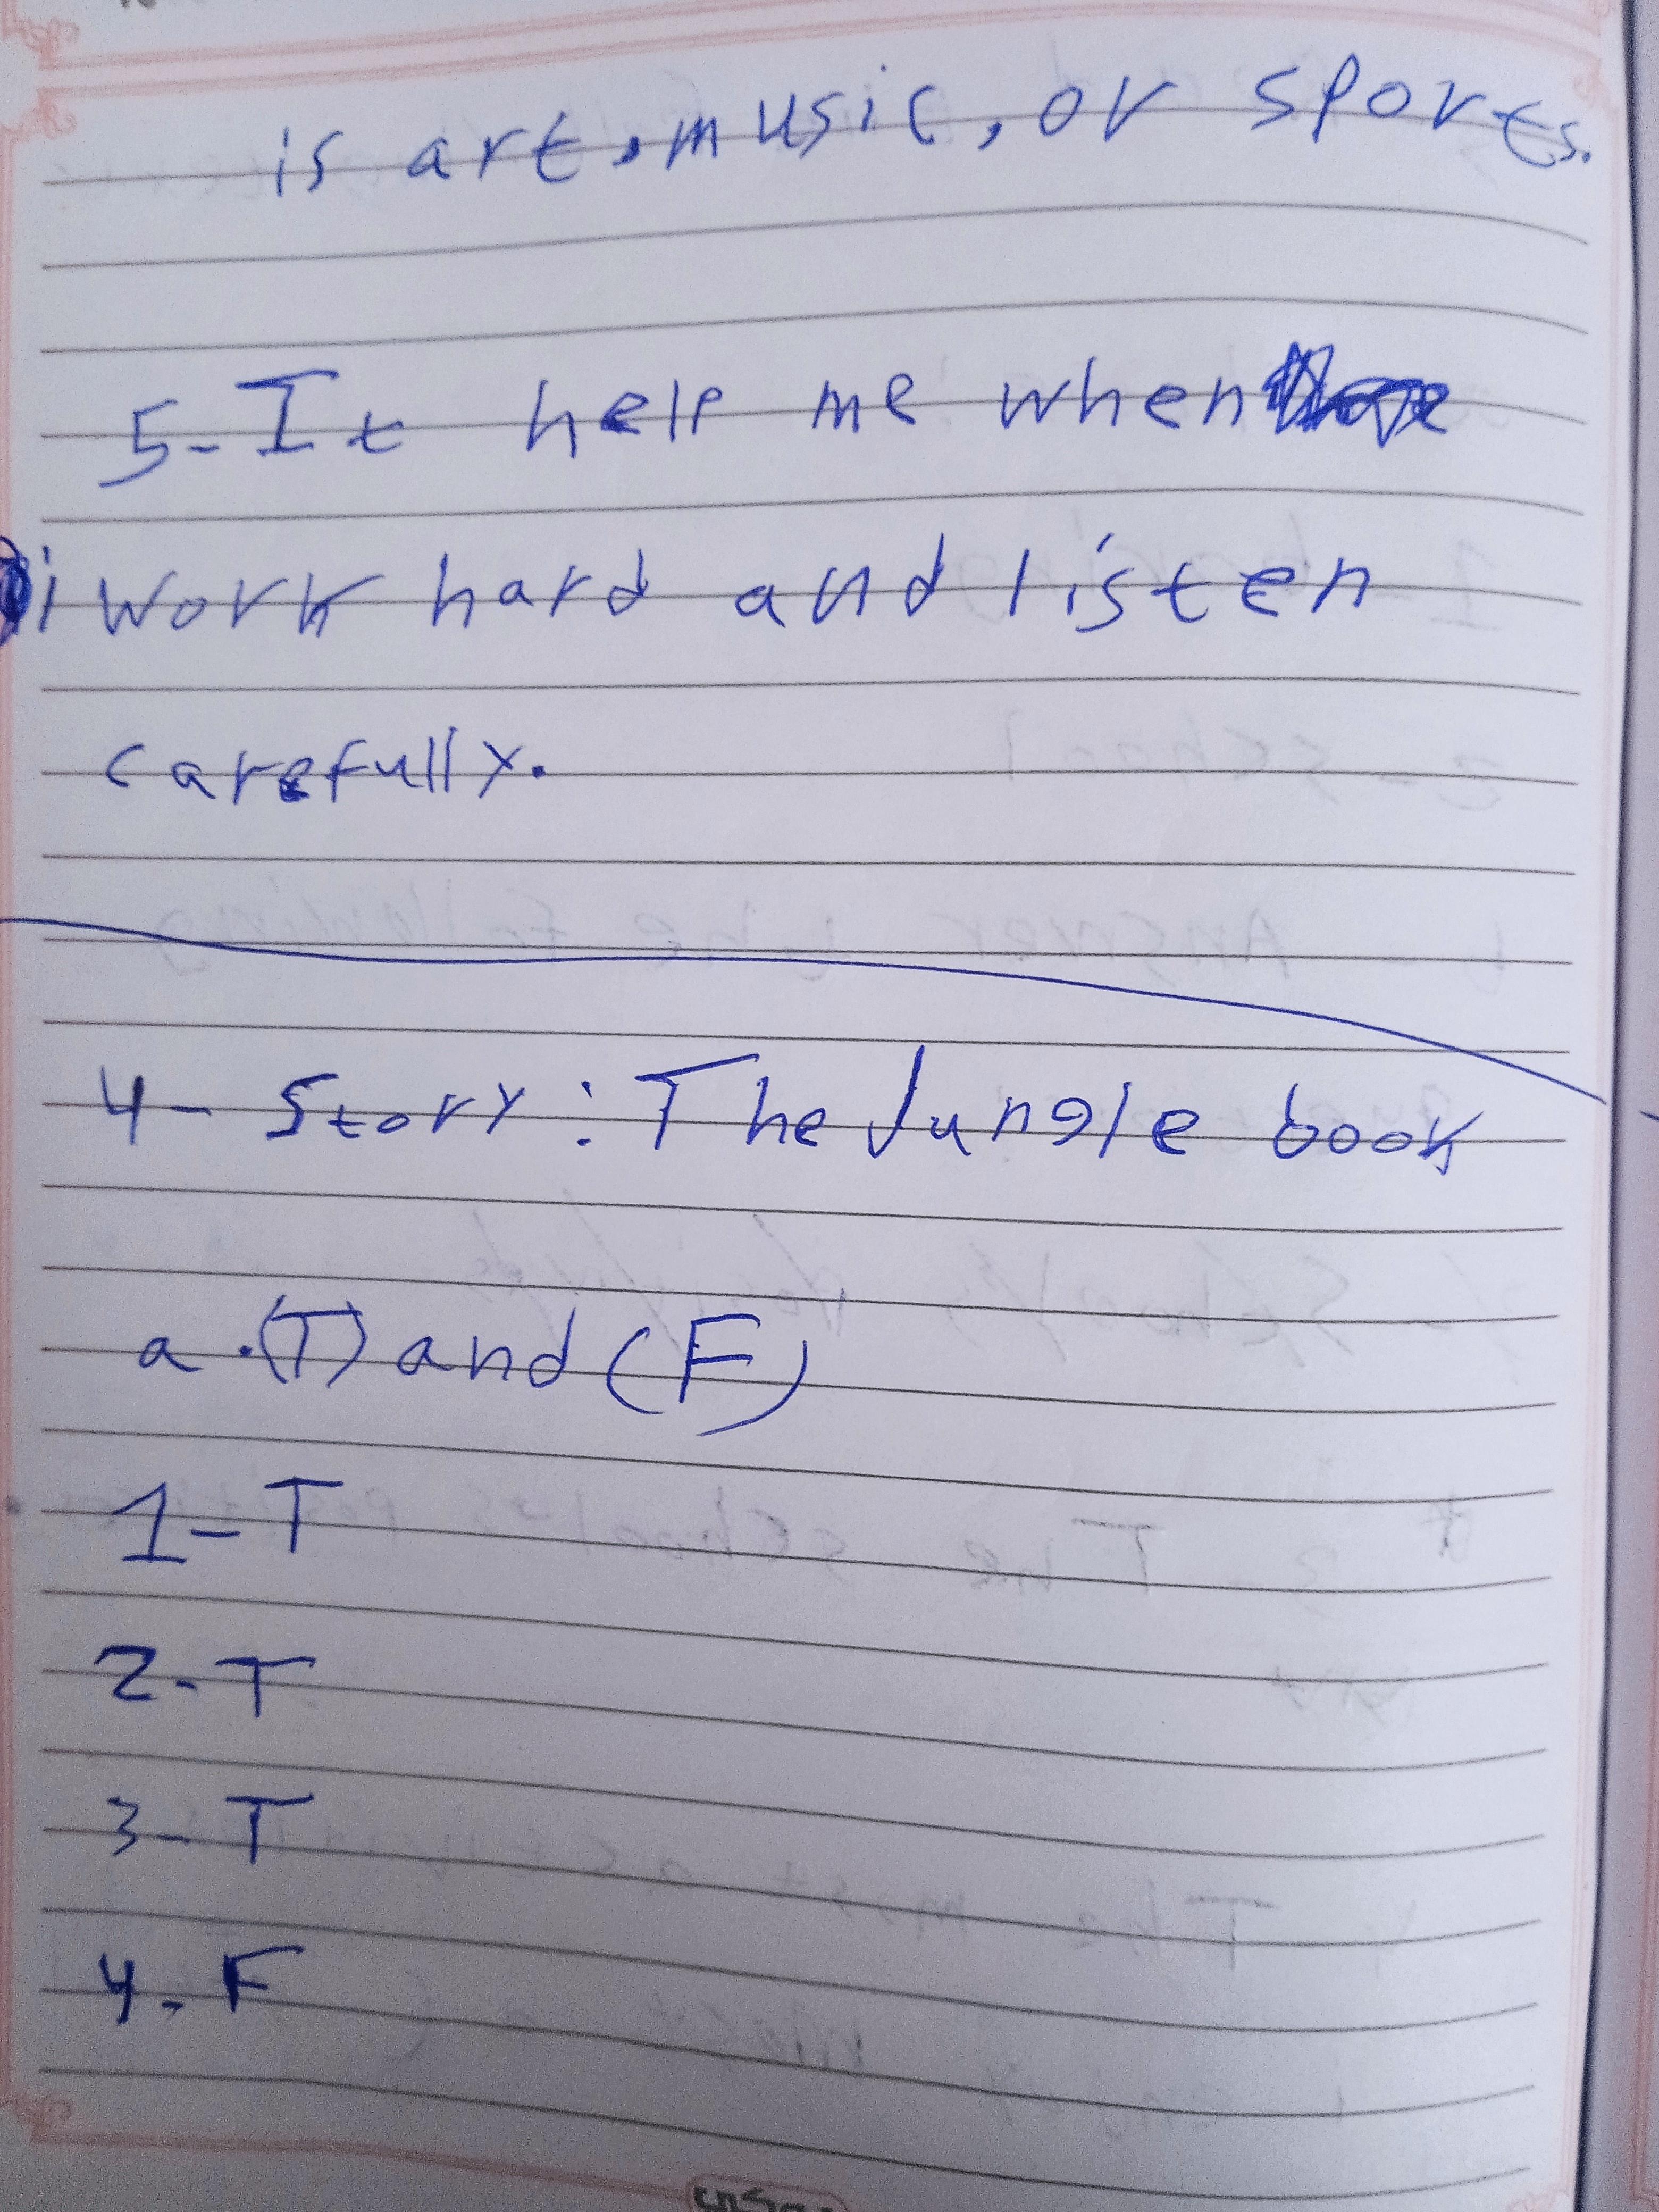 is art, music, or sports.
5- It help me when
i work hard and listen
carefully.
4- Story: The Jungle book
a.(T) and (F)
1- T
2- T
3- T
4- F